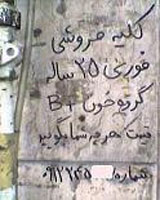 کلیه فروشی
فوری ۲۵ ساله
گروه خون B+
قیمت هرچه شما بگویید
شماره/ ۰۹۱۲۲۴۵